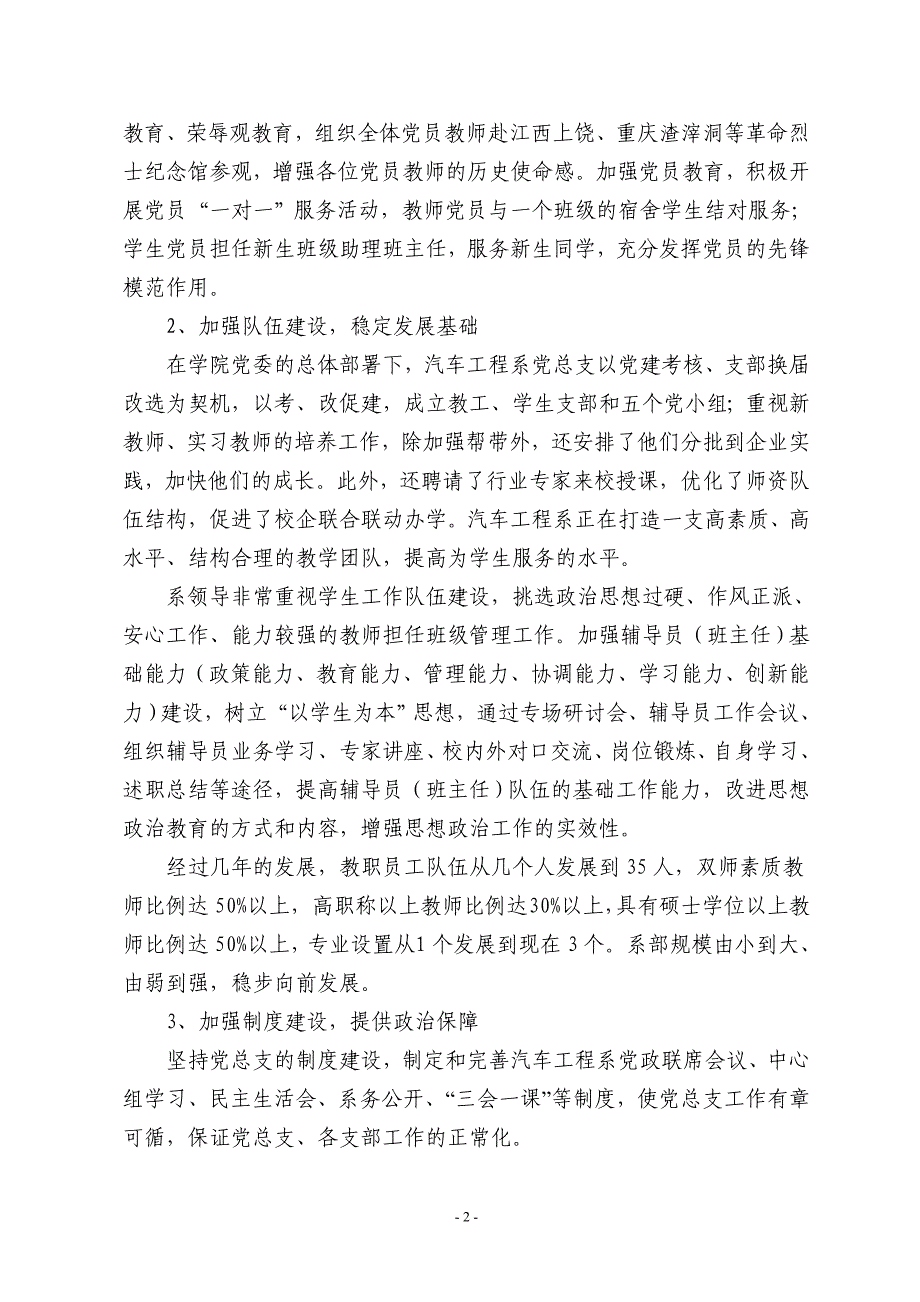 教育、荣辱观教育，组织全体党员教师赴江西上饶、重庆渣滓洞等革命烈
士纪念馆参观，增强各位党员教师的历史使命感。加强党员教育，积极开
展党员 “一对一”服务活动，教师党员与一个班级的宿舍学生结对服务；
学生党员担任新生班级助理班主任，服务新生同学，充分发挥党员的先锋
模范作用。
2、加强队伍建设，稳定发展基础
在学院党委的总体部署下，汽车工程系党总支以党建考核、支部换届
改选为契机，以考、改促建，成立教工、学生支部和五个党小组；重视新
教师、实习教师的培养工作，除加强帮带外，还安排了他们分批到企业实
践，加快他们的成长。此外，还聘请了行业专家来校授课，优化了师资队
伍结构，促进了校企联合联动办学。汽车工程系正在打造一支高素质、高
水平、结构合理的教学团队，提高为学生服务的水平。
系领导非常重视学生工作队伍建设，挑选政治思想过硬、作风正派、
安心工作、能力较强的教师担任班级管理工作。加强辅导员（班主任）基
础能力（政策能力、教育能力、管理能力、协调能力、学习能力、创新能
力）建设，树立 “以学生为本” 思想，通过专场研讨会、辅导员工作会议、
组织辅导员业务学习、专家讲座、校内外对口交流、岗位锻炼、自身学习、
述职总结等途径，提高辅导员（班主任）队伍的基础工作能力，改进思想
政治教育的方式和内容，增强思想政治工作的实效性。
经过几年的发展，教职员工队伍从几个人发展到 35 人，双师素质教
师比例达 50%以上，高职称以上教师比例达30%以上，具有硕士学位以上教
师比例达 50%以上，专业设置从1 个发展到现在 3 个。系部规模由小到大、
由弱到强，稳步向前发展。
3、加强制度建设，提供政治保障
坚持党总支的制度建设，制定和完善汽车工程系党政联席会议、中心
组学习、民主生活会、系务公开、“三会一课”等制度，使党总支工作有章
可循，保证党总支、各支部工作的正常化。
- 2 -